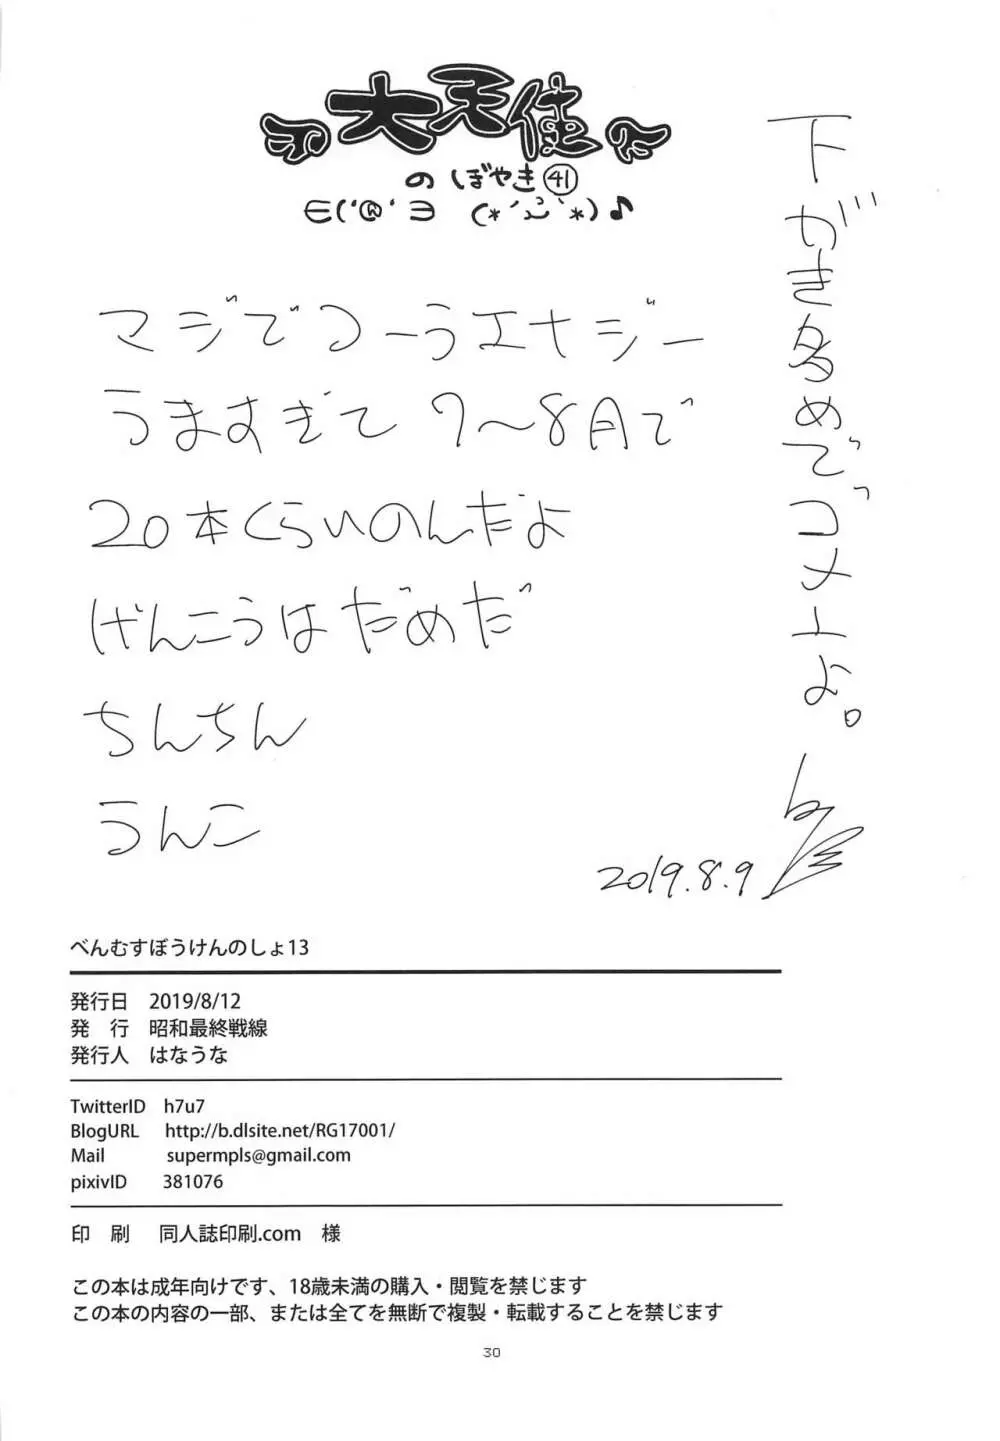 大天使
のぼやき㊶
∈('®'∋ (*´ω`*)♪
下がき多めでゴメーよ。
マジでコーラエナジー
うますぎて 7〜8月で
20本くらいのんだよ
げんこうはだめだ
ちんちん
うんこ
2019.8.9
べんむすぼうけんのしょ13
発行日 2019/8/12
発 行 昭和最終戦線
発行人 はなうな
TwitterID h7u7
BlogURL http://b.dlsite.net/RG17001/
Mail supermpls@gmail.com
pixivID 381076
印 刷 同人誌印刷.com 様
この本は成年向けです、18歳未満の購入・閲覧を禁じます
この本の内容の一部、または全てを無断で複製・転載することを禁じます
30